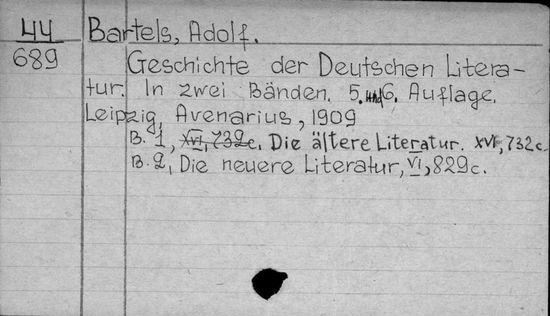 44 Bartels, Adolf.
689 Geschichte der Deutschen Litera-
tur. In zwei Bänden. 5. und 6. Auflage.
Leipzig, Avenarius, 1909
B. 1, XVI, 732c. Die ältere Literatur. XVI, 732c.
B. 2, Die neuere Literatur, VI, 829c.